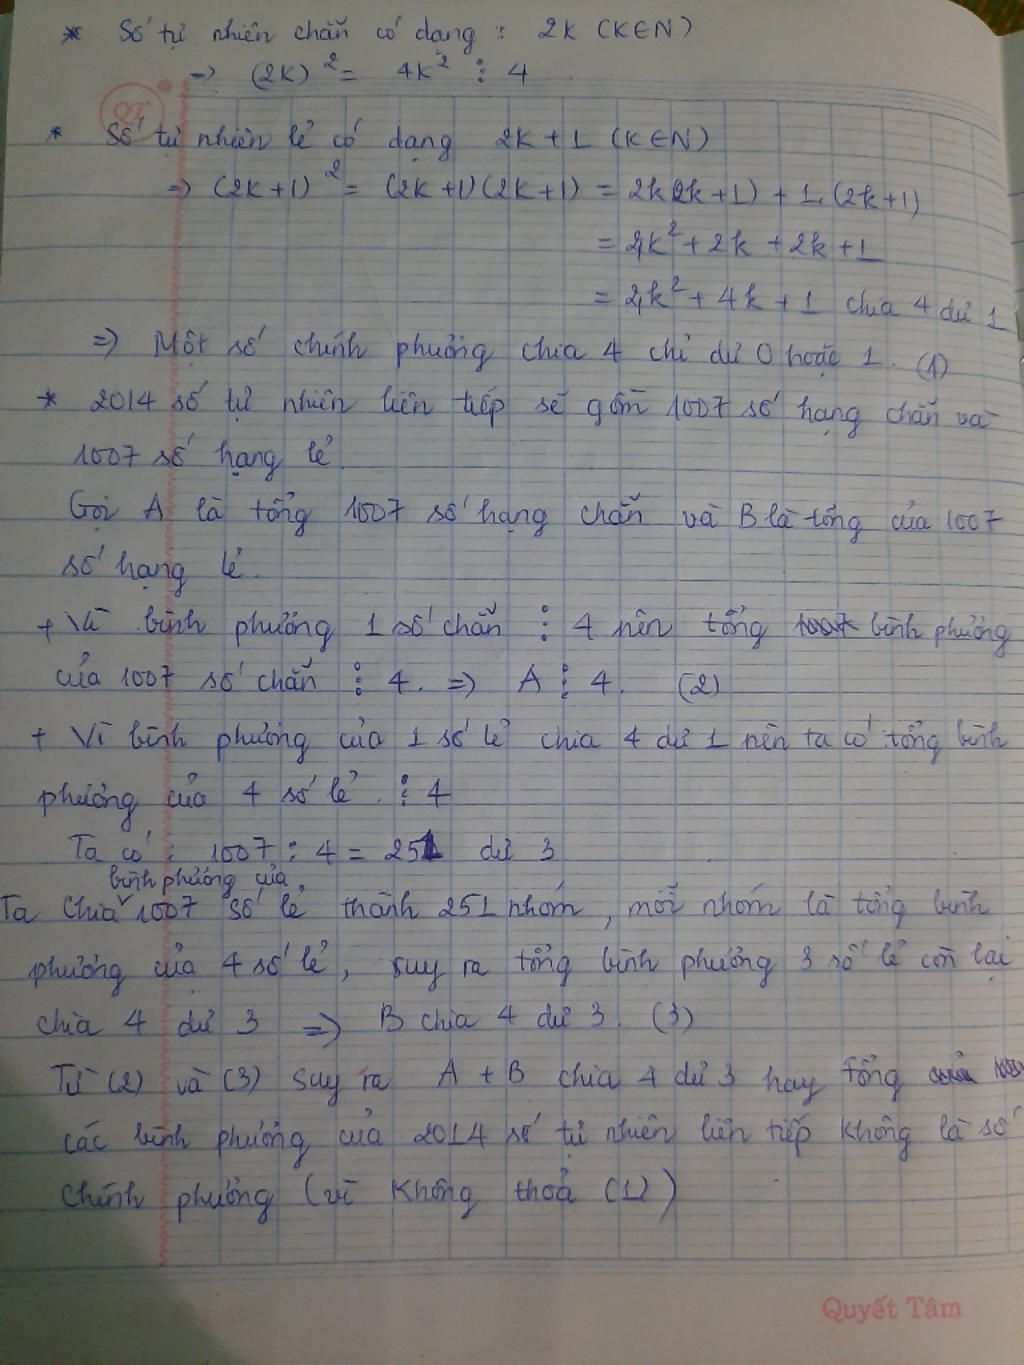 * Số tự nhiên chẵn có dạng : 2k (K∈N)
=> (2k)² = 4k² ⋮ 4
* Số tự nhiên lẻ có dạng 2k + 1 (K∈N)
=> (2k+1)² = (2k+1)(2k+1) = 2k(2k+1) + 1.(2k+1)
= 4k² + 2k + 2k + 1
= 4k² + 4k + 1 chia 4 dư 1
=> Một số chính phương chia 4 chỉ dư 0 hoặc 1. (1)
* 2014 số tự nhiên liên tiếp sẽ gồm 1007 số hạng chẵn và
1007 số hạng lẻ.
Gọi A là tổng 1007 số hạng chẵn và B là tổng của 1007
số hạng lẻ.
+ Vì bình phương 1 số chẵn ⋮ 4 nên tổng bình phương
của 1007 số chẵn ⋮ 4. => A ⋮ 4. (2)
+ Vì bình phương của 1 số lẻ chia 4 dư 1 nên ta có tổng bình
phương của 4 số lẻ ⋮ 4
Ta có : 1007 : 4 = 251 dư 3
bình phương của
Ta chia 1007 số lẻ thành 251 nhóm, mỗi nhóm là tổng bình
phương của 4 số lẻ, suy ra tổng bình phương 3 số lẻ còn lại
chia 4 dư 3 => B chia 4 dư 3. (3)
Từ (2) và (3) suy ra A + B chia 4 dư 3 hay tổng
các bình phương của 2014 số tự nhiên liên tiếp không là số
chính phương (vì không thoả (1))
Quyết Tâm